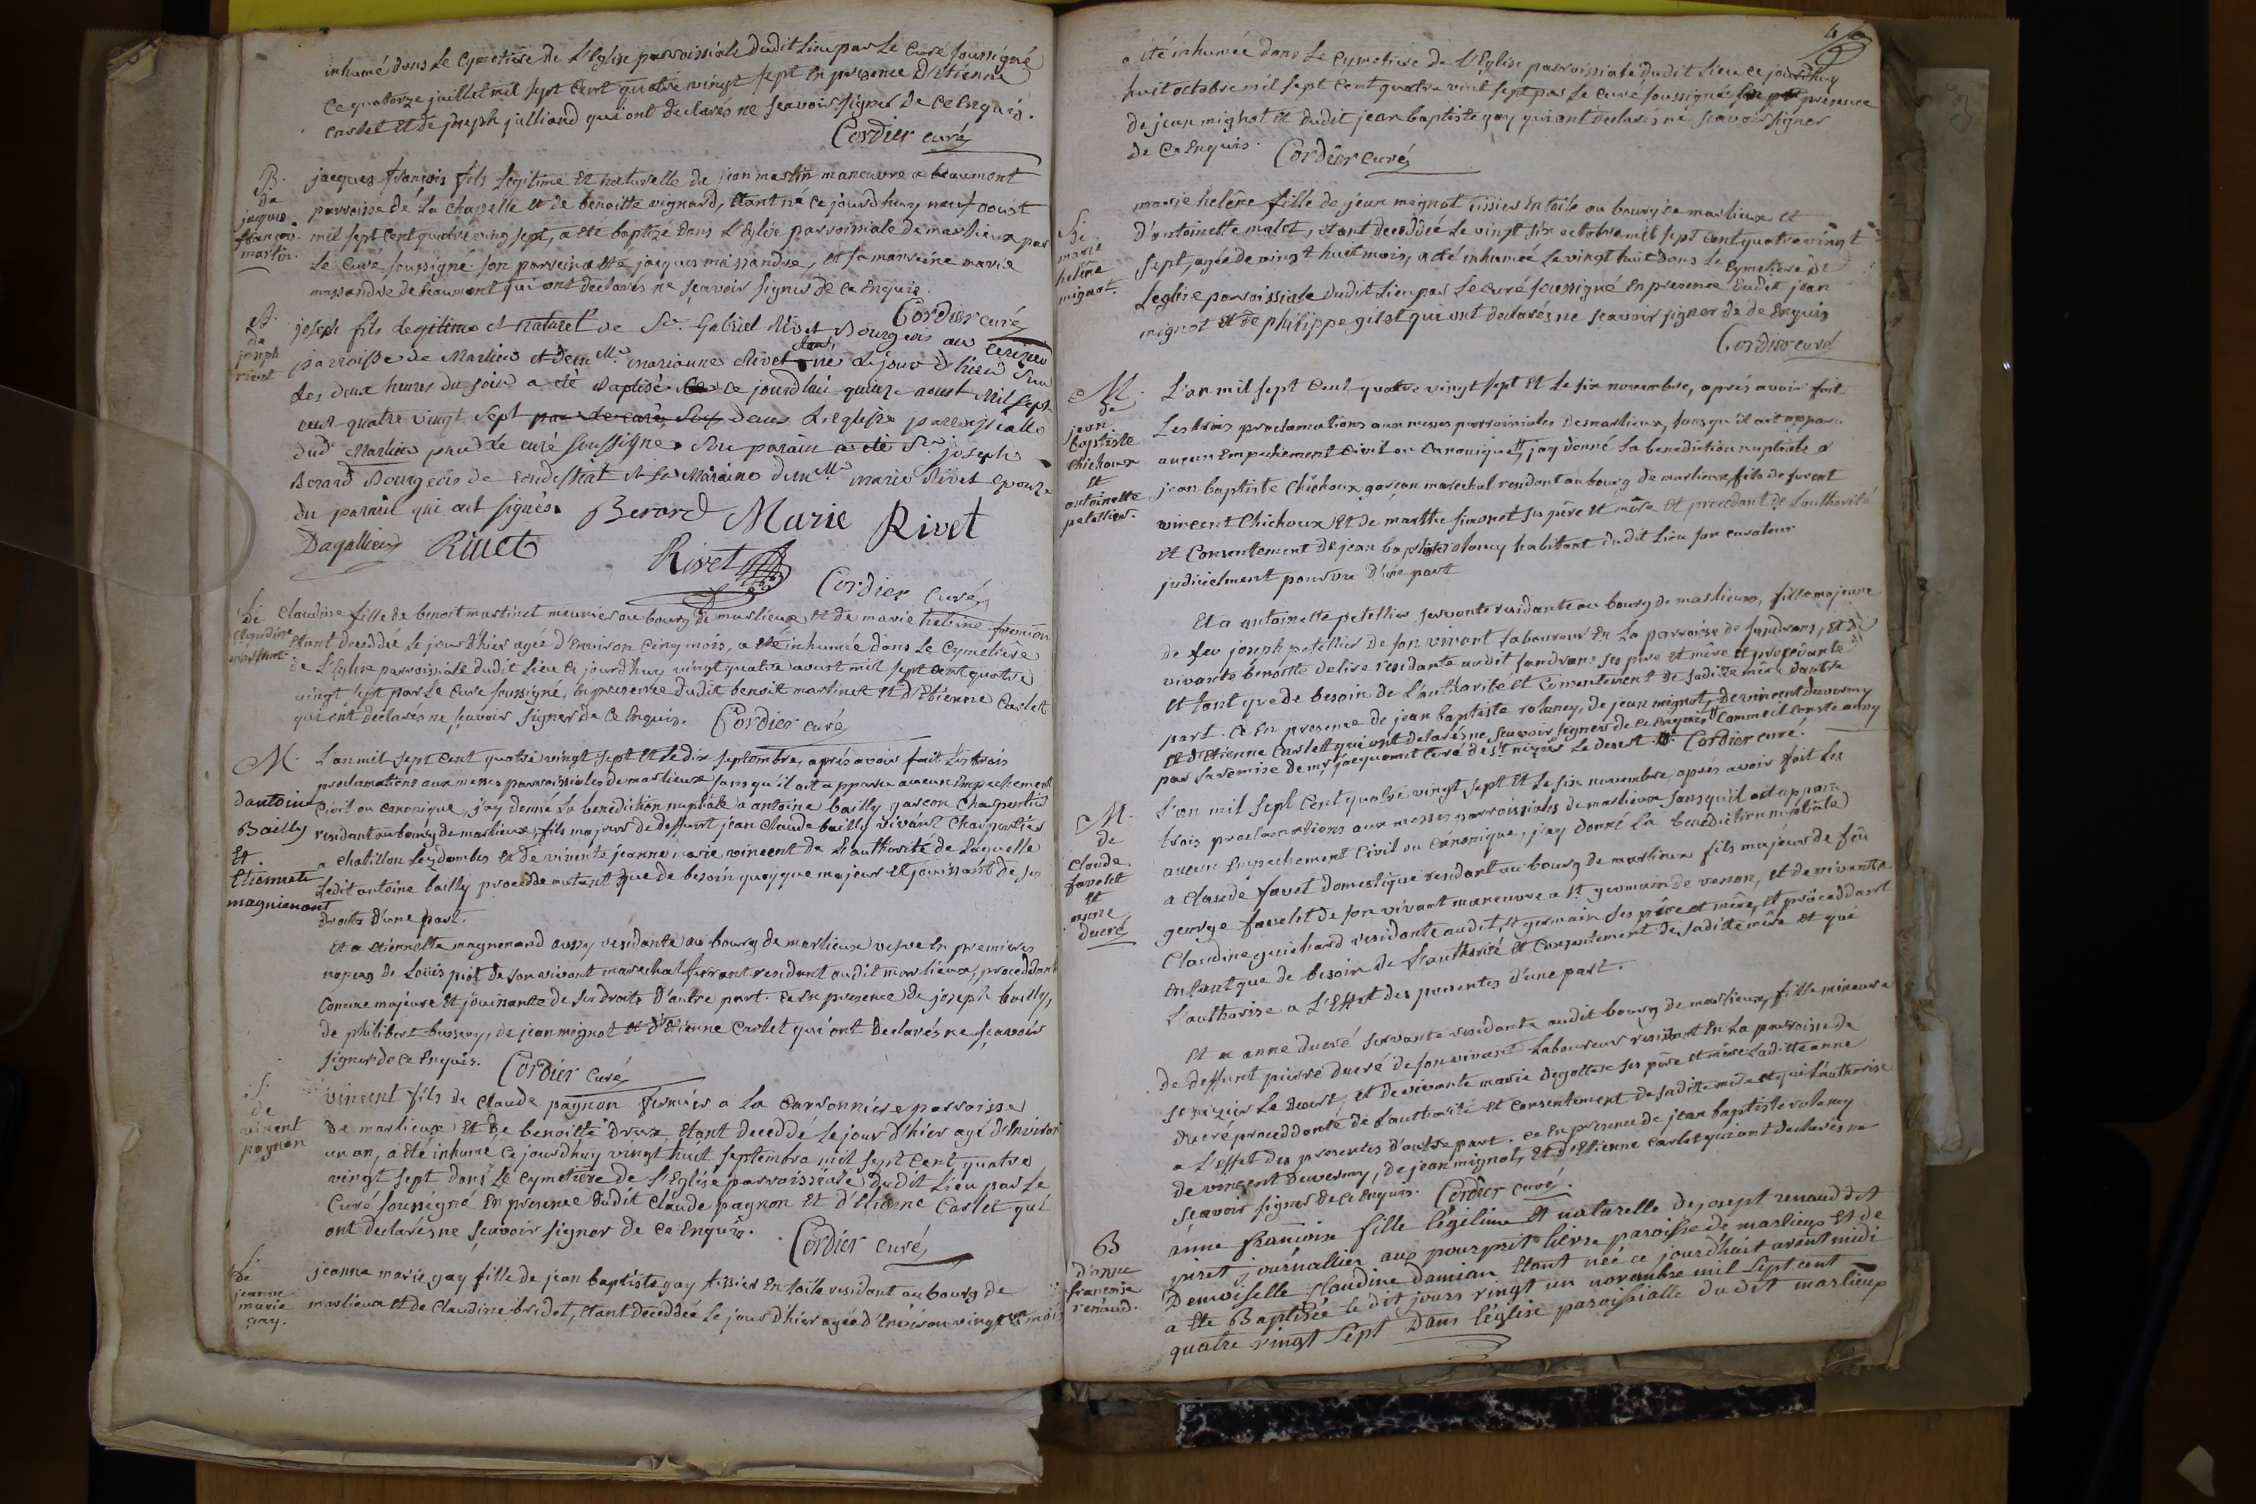 inhumé dans le cymetière de L'Eglise parroissiale dudit Lieu par Le Curé soussigné
Ce quatorze juillet mil sept Cent quatre vingt sept En presence D'Etienne
Carlet Et de joseph julliand qui ont declarés ne sçavoir signer de ce Enquis.
Cordier curé
B.
De
jacques
françois
martin.
jacques françois fils Legitime et naturelle de jean martin manœuvre a beaumont
parroisse de La chapelle et de benoitte vignard, Etant né ce jourd'huy neuf aoust
mil sept Cent quatre ving sept, a eté baptizé dans L'Eglise parroissiale de marlieux par
Le Curé soussigné son parrein a été jacques massandre, et sa marreine marie
massandre de beaumont qui ont declarés ne sçavoir signer de ce Enquis.
Cordier curé
B.
de
joseph
rivet
joseph fils Legitime et naturel de Sr. Gabriel Rivet Bourgeois au
parroisse de Marlieu et demlle marianne Rivet étant né Le jour d'hier sur
Les deux heures du soir a eté Baptisé ce jourd'hui quinze aoust Mil sept
cent quatre vingt sept par le curé sous dans L'eglise parroissialle
dud Marlieu par Le curé soussigné Son parain a été Sr. joseph
Berard Bourgeois de et sa Maraine demlle marie Rivet epouze
du parain qui ont signés. Berard Marie Rivet
Dagallier Rivet
Rivet
Cordier Curé
S.
de
Claudine
martinet.
Claudine fille de benoit martinet meunier au bourg de marlieux et de marie helene fremion
Etant decedée le jour d'hier agée d'Environ cinq mois, a eté inhumée dans Le Cymetiere
de L'Eglise parroissiale dudit Lieu ce jourd'huy vingt quatre aoust mil sept Cent quatre
vingt sept par Le Curé soussigné, En presence dudit benoit martinet et d'Etienne Carlet
qui ont declarés ne sçavoir signer de ce Enquis. Cordier curé
M.
d'antoine
Bailly
Et
Etiennete
magnienant
L'an mil sept Cent quatre vingt sept et Le dix septembre, aprés avoir fait Les trois
proclamations aux messes parroissiales de marlieux sans qu'il ait apparu aucun Empechement
Civil ou canonique, j'ay donné La benediction nuptiale a antoine bailly garçon Charpentier
residant au bourg de marlieux, fils majeur de deffunt jean claude bailly vivant Charpentier
a chatillon Les dombes et de vivente jeanne marie vincent de L'authorité de Laquelle
Ledit antoine bailly procedde autant que de besoin quoyque majeur et jouissant de ses
droits d'une part.
Et a etiennette magnenand aussy residante au bourg de marlieux vefve En premieres
nopces de Loüis piot de son vivant marechal ferrant residant audit marlieux, proceddant
Comme majeure et jouissante de ses droits d'autre part. Ce En presence de joseph bailly,
de philibert bussery, de jean mignot et d'Etienne Carlet qui ont Declarés ne sçavoir
signer de ce Enquis. Cordier Curé
S.
de
vincent
pagnon
vincent fils de Claude pagnon fermier a la Carronniere parroisse
De marlieux et de benoitte Droux Etant deceddé le jour d'hier agé d'Environ
un an, a été inhumé Ce jourd'huy vingt huit septembre mil sept Cent quatre
vingt sept dans Le Cymetiere de L'Eglise parroissiale Dudit Lieu par Le
Curé soussigné En presence Dudit Claude pagnon et d'Etienne Carlet qui
ont declarés ne sçavoir signer de ce Enquis. Cordier curé
S.
de
jeanne
marie
gay.
jeanne marie gay fille de jean baptiste gay tissier En toile residant au bourg de
marlieux et de Claudine bridet, Etant Deceddée le jour d'hier agée d'Environ vingt un mois
a été inhumée dans Le Cymetiere de L'Eglise parroissiale dudit Lieu ce jourd'huy
huit octobre mil sept Cent quatre vint sept par Le Curé soussigné presence
De jean mignot et dudit jean baptiste gay qui ont declarés ne sçavoir signer
de Ce Enquis. Cordier curé
S.
De
marie
helêne
mignot.
marie helêne fille de jean mignot tissier En toile au bourg de marlieux et
d'antoinette malet, etant deceddée Le vingt six octobre mil sept Cent quatre vingt
sept, agée de vingt huit mois, a eté inhumée Le vingt huit dans Le Cymetiere de
Leglise parroissiale dudit Lieu par Le Curé soussigné En presence Dudit jean
mignot et de philippe gilet qui ont declarés ne sçavoir signer de ce Enquis
Cordier curé
M.
de
jean
baptiste
Chichoux
Et
antoinette
petellier.
L'an mil sept Cent quatre vingt sept et Le six novembre, aprés avoir fait
Les trois proclamations aux messes parroissiales De marlieux, sans qu'il ait apparu
aucun Empechement Civil ou Canonique, jay donné La benediction nuptiale a
jean baptiste Chichoux garçon marechal residant au bourg de marlieux fils de furent
vincent Chichoux et de marthe simonet ses père et mère et procedant de L'authorité
et Consentement de jean baptiste rolancy habitant dudit Lieu son curateur
judiciellment pourvu D'une part
Et a antoinette petellier servante residante au bourg de marlieux, fille majeure
de feu joseph petellier De son vivant Laboureur En La parroisse de sandrans, et de
vivante benoitte delire residante audit sandrans ses père et mère et procedante
et tant que de besoin de L'authorité et Consentement de sadite mère d'autre
part. Ce En presence de jean baptiste rolancy, de jean mignot, de vincent duvernay
et d'Etienne Carlet qui ont delarés ne sçavoir signer de ce Enquis Comme il conste aussy
par La remise de mr jacquemet Curé de st. nizier Le desert. Cordier curé.
M.
de
Claude
favelet
et
anne
ducré
L'an mil sept Cent quatre vingt sept et Le six novembre, aprés avoir fait Les
trois proclamations aux messes parroissiales de marlieux sans qu'il ait apparu
aucun Empechement Civil ou Canonique, j'ay donné La benediction nuptiale
a Claude favet domestique residant au bourg de marlieux fils majeur de feu
george favelet de son vivant manœuvre a St. germain de renon, et de vivante
Claudine guichard residante audit St. germain ses père et mère, et proceddant
En tant que de besoin de L'authorité et Consentement de sadite mère et qui
L'authorise a L'Effet des presentes d'une part.
Et a anne ducré servante residante audit bourg de marlieux, fille mineure
De deffunt pierre ducré de son vivant Laboureur residant En La parroisse de
St. nizier Le Desert, et de vivante marie degottex ses père et mère Laditte anne
ducré proceddante de L'authorité et Consentement de sadite mère et qui L'authorise
a L'effet des presentes d'autre part. Ce En presence de jean baptiste rolancy
de vincent Duvernay, de jean mignot, et d'Etienne Carlet qui ont declarés ne
sçavoir signer de Ce Enquis. Cordier curé.
B
D'anne
françoise
renaud.
anne françoise fille légitime et naturelle de josept renaud dit
piret journallier aux pourprit lierre paroisse de marlieux et de
Demoiselle Claudine damian Etant née ce jourd'huit avant midi
a Ete Baptisée le dit jours vingt un novembre mil sept cent
quatre vingt sept Dans l'église paroissialle du dit marlieux